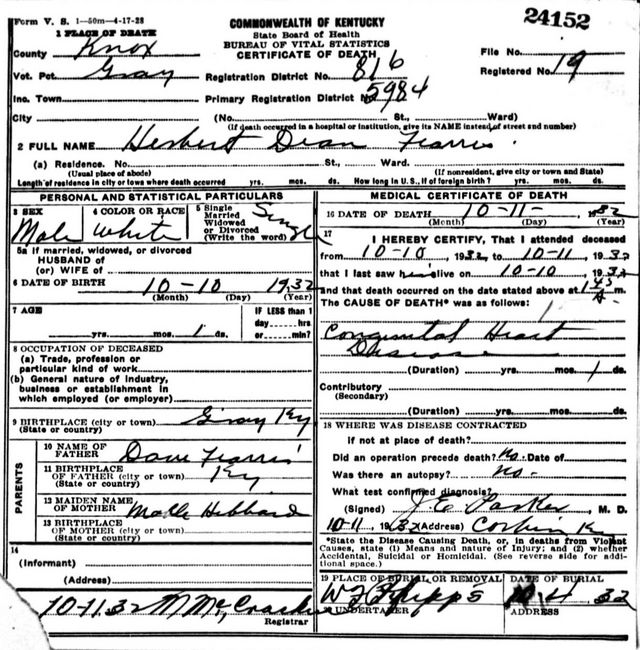 Form V. S. 1—50m—4-17-28
24152
1 PLACE OF DEATH
COMMONWEALTH OF KENTUCKY
State Board of Health
BUREAU OF VITAL STATISTICS
CERTIFICATE OF DEATH
County Knox
File No.
Vot. Pct. Gray
Registration District No. 816
Registered No. 19
Inc. Town
Primary Registration District No. 5984
City (No. St., Ward)
(If death occurred in a hospital or institution, give its NAME instead of street and number)
2 FULL NAME Herbert Dean
(a) Residence. No. St., Ward.
(Usual place of abode) (If nonresident, give city or town and State)
Length of residence in city or town where death occurred yrs. mos. ds. How long in U. S., if of foreign birth? yrs. mos. ds.
PERSONAL AND STATISTICAL PARTICULARS
3 SEX Male
4 COLOR OR RACE White
5 Single
Married
Widowed
or Divorced
(Write the word) Single
5a If married, widowed, or divorced
HUSBAND of
(or) WIFE of
6 DATE OF BIRTH 10-10 1932
(Month) (Day) (Year)
7 AGE
IF LESS than 1
day hrs
or min?
yrs. mos. 1 ds.
8 OCCUPATION OF DECEASED
(a) Trade, profession or
particular kind of work
(b) General nature of industry,
business or establishment in
which employed (or employer)
9 BIRTHPLACE (city or town) Gray Ky
(State or country)
PARENTS
10 NAME OF
FATHER
11 BIRTHPLACE
OF FATHER (city or town) Ky
(State or country)
12 MAIDEN NAME
OF MOTHER Hibbard
13 BIRTHPLACE
OF MOTHER (city or town)
(State or country)
14
(Informant)
(Address)
10-11 32
Registrar
MEDICAL CERTIFICATE OF DEATH
16 DATE OF DEATH 10-11- 1932
(Month) (Day) (Year)
17
I HEREBY CERTIFY, That I attended deceased
from 10-10, 1932 to 10-11, 1932
that I last saw him alive on 10-10, 1932
and that death occurred on the date stated above at 145 A m.
The CAUSE OF DEATH* was as follows:
Congenital Heart
Disease
(Duration) yrs. mos. 1 ds.
Contributory
(Secondary)
(Duration) yrs. mos. ds.
18 WHERE WAS DISEASE CONTRACTED
if not at place of death?
Did an operation precede death? No. Date of
Was there an autopsy? No-
What test confirmed diagnosis?
(Signed) J. E. Parker, M. D.
10-11, 1932 (Address) Corbin Ky
*State the Disease Causing Death, or, in deaths from Violent
Causes, state (1) Means and nature of Injury; and (2) whether
Accidental, Suicidal or Homicidal. (See reverse side for addi-
tional space.)
19 PLACE OF BURIAL OR REMOVAL
DATE OF BURIAL
32
20 UNDERTAKER
ADDRESS